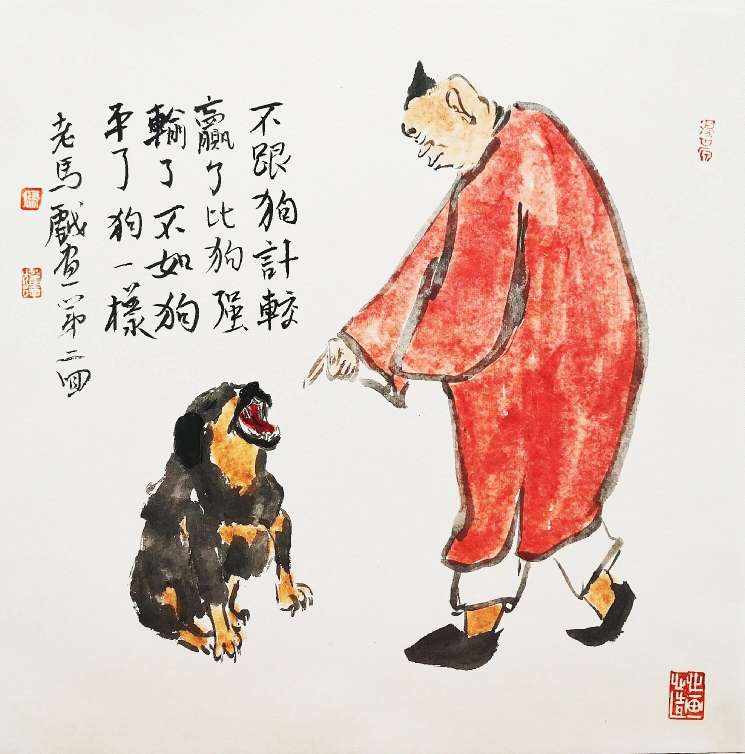 不跟狗計較
贏了比狗强
輸了不如狗
平了狗一樣
老馬戲画第二回